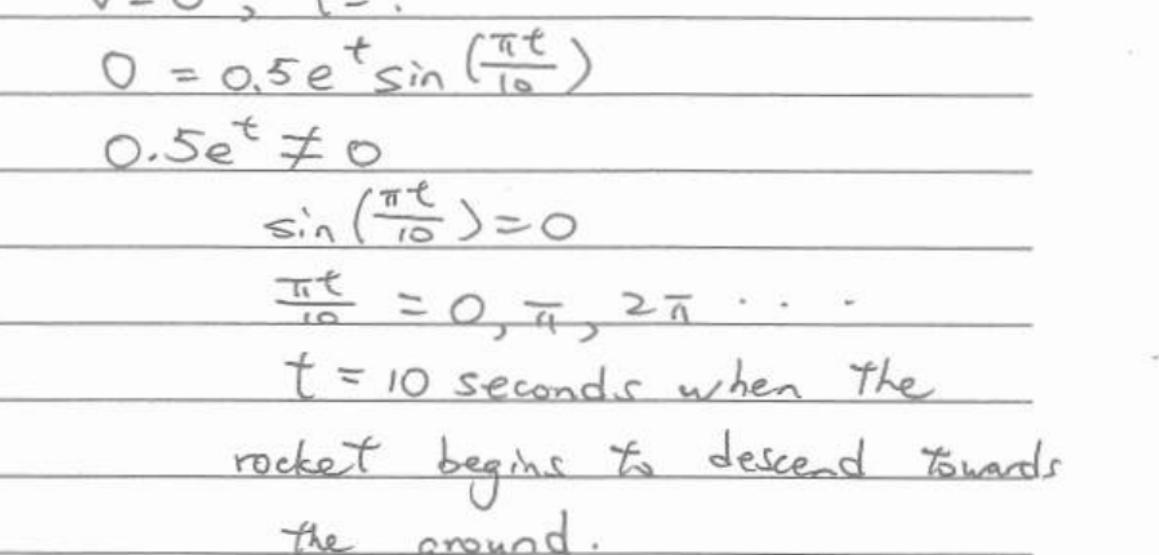 0 = 0.5e^t sin (πt/10)
0.5e^t ≠ 0
sin (πt/10) = 0
πt/10 = 0, π, 2π . . . .
t = 10 seconds when the
rocket begins to descend towards
the ground.